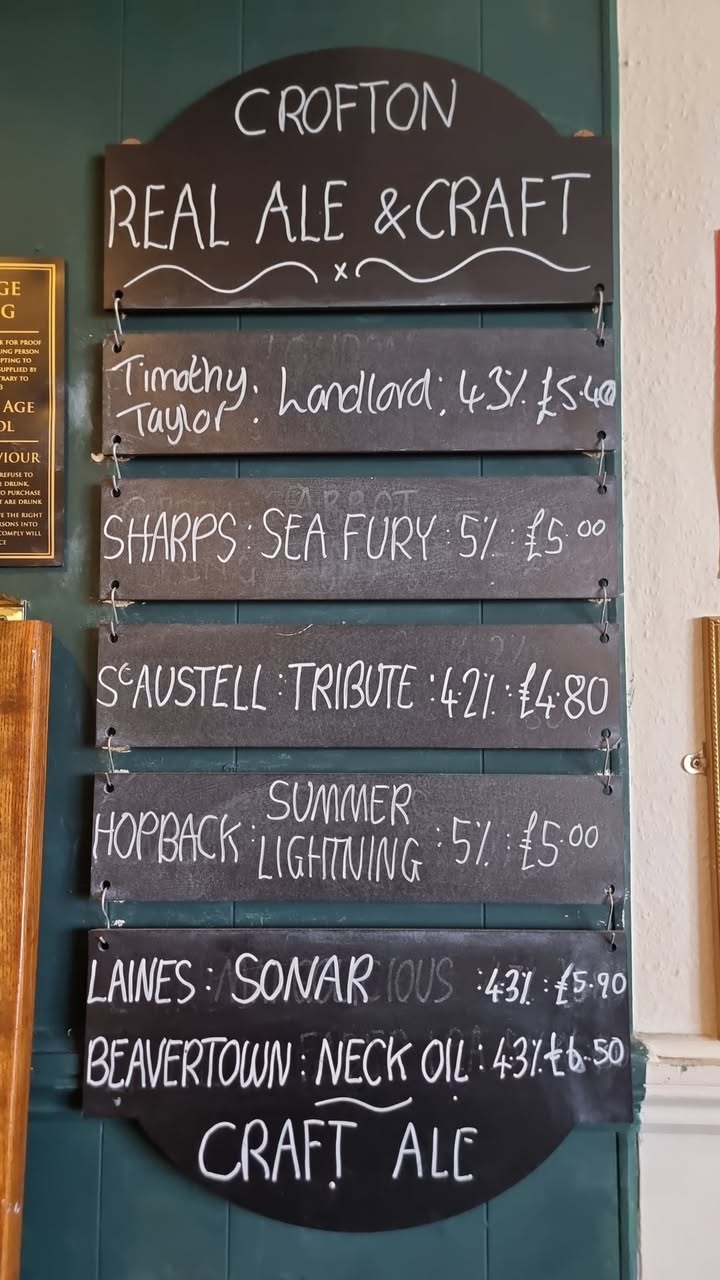 CROFTON
REAL ALE & CRAFT
x
Timothy Taylor: Landlord: 4.3% £5.40
SHARPS: SEA FURY: 5%: £5.00
St AUSTELL: TRIBUTE: 4.2%: £4.80
HOPBACK: SUMMER LIGHTNING: 5%: £5.00
LAINES: SONAR: 4.3%: £5.90
BEAVERTOWN: NECK OIL: 4.3% £6.50
CRAFT ALE
GE
G
K FOR PROOF
NG PERSON
PTING TO
SUPPLIED BY
TRARY TO
AGE
OL
VIOUR
REFUSE TO
E DRUNK,
O PURCHASE
T ARE DRUNK
E THE RIGHT
RSONS INTO
COMPLY WILL
CE